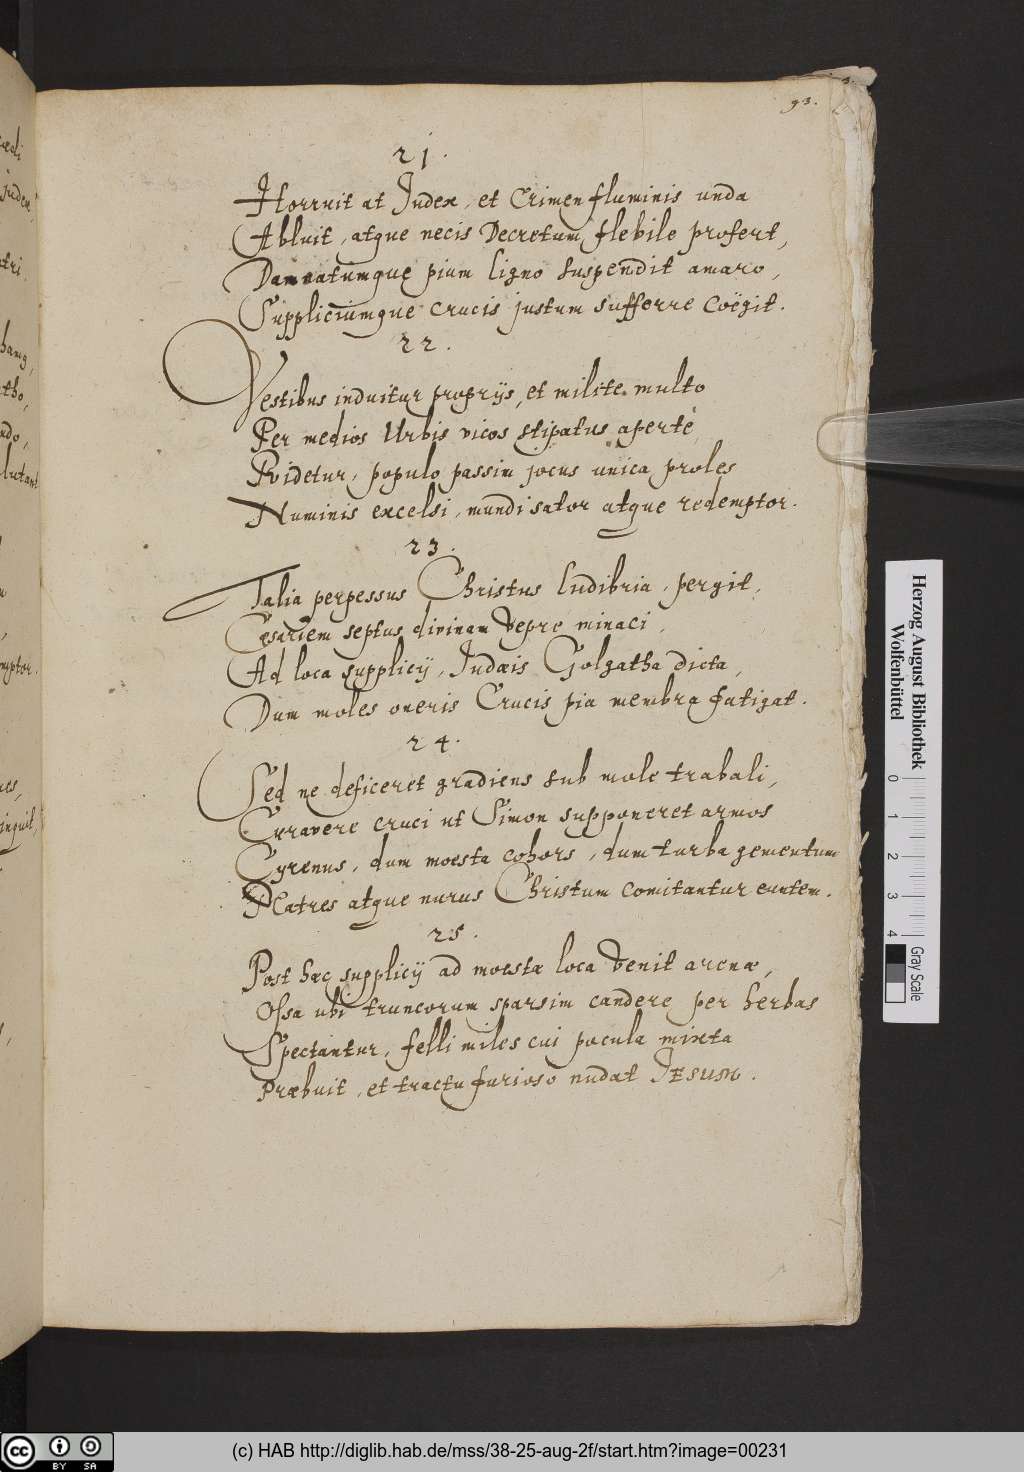 93.
21.
Horruit at Iudex, et Crimen fluminis unda
Abluit, atque necis Decretum flebile profert,
Damnatumque pium ligno suspendit amaro,
Suppliciumque crucis justum sufferre coëgit.
22.
Vestibus induitur proprijs, et milite multo
Per medios Urbis vicos stipatus apertè
Ridetur, populo passim jocus unica proles
Numinis excelsi, mundi sator atque redemptor.
23.
Talia perpessus Christus ludibria, pergit,
Cæsariem septus divinam vepre minaci,
Ad loca supplicij, Iudæis Golgatha dicta,
Dum moles oneris Crucis pia membra fatigat.
24.
Sed ne deficeret gradiens sub mole trabali,
Curavere cruci ut Simon supponeret armos
Cyrenus, dum moesta cohors, dum turba gementum
Matres atque nurus Christum comitantur euntem.
25.
Post hæc supplicij ad moestæ loca venit arenæ,
Ossa ubi truncorum sparsim candere per herbas
Spectantur, felli miles cui pocula mixta
Præbuit, et tractu furioso nudat IESUM.
Herzog August Bibliothek
Wolfenbüttel
0 1 2 3 4
Gray Scale
cc BY SA
(c) HAB http://diglib.hab.de/mss/38-25-aug-2f/start.htm?image=00231